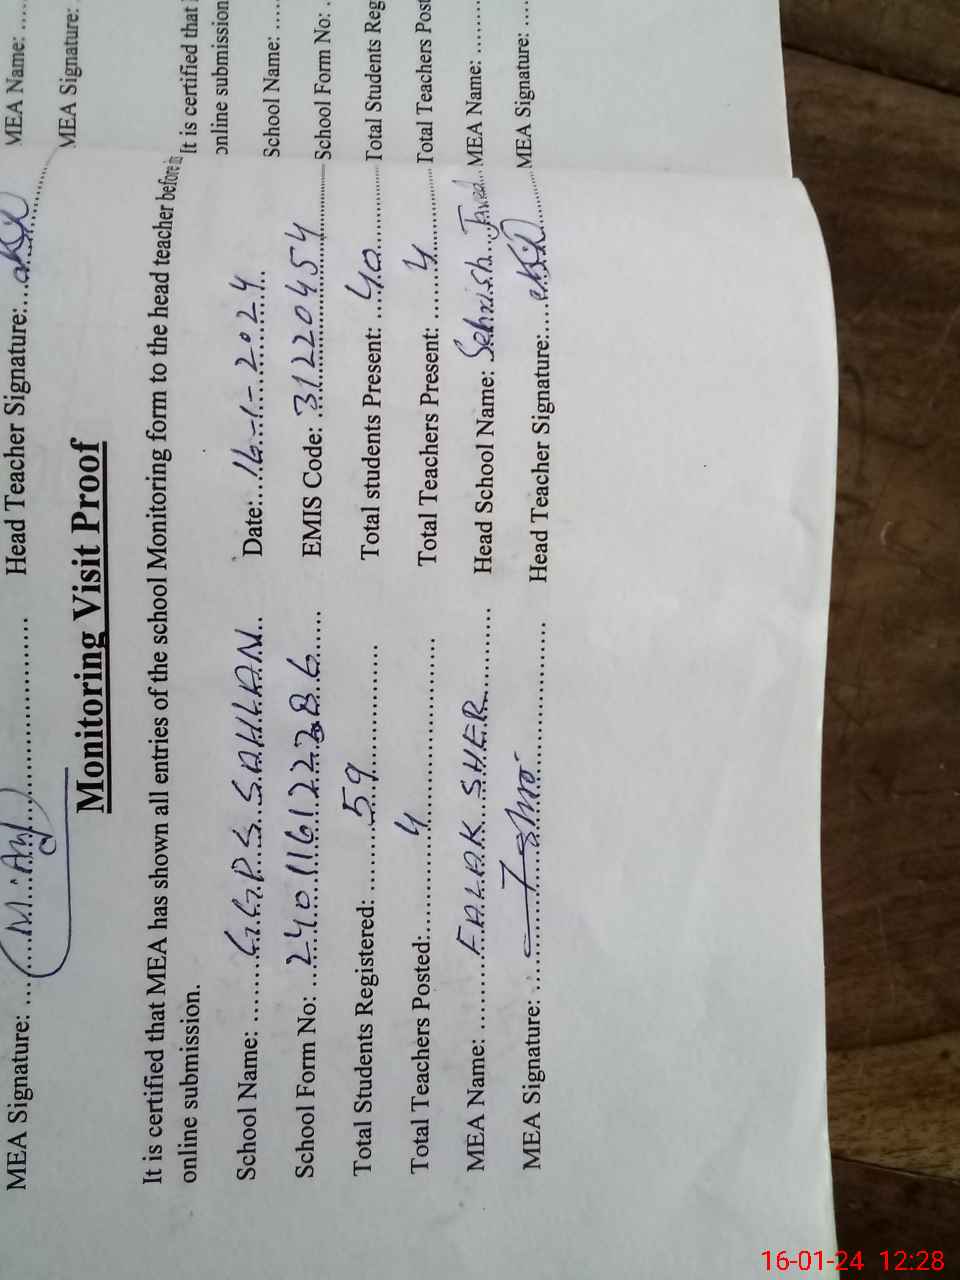 MEA Signature: ....M. Anj......... Head Teacher Signature:...
Monitoring Visit Proof
It is certified that MEA has shown all entries of the school Monitoring form to the head teacher before its
online submission.
School Name: ........G.G.P.S. SAHLAN.. Date:...16-1-2024..
School Form No: ..24011612286..... EMIS Code: .31220454
Total Students Registered: .......59............... Total students Present: ...40............
Total Teachers Posted:............4...................... Total Teachers Present: .....4..............
MEA Name: ........FALAK SHER........... Head School Name: Sehrish Javed
MEA Signature: ... Head Teacher Signature:....
MEA Name: ....
MEA Signature:
It is certified that
online submission
School Name: ....
School Form No: .
Total Students Reg
Total Teachers Post
MEA Name: ........
MEA Signature: ....
16-01-24 12:28